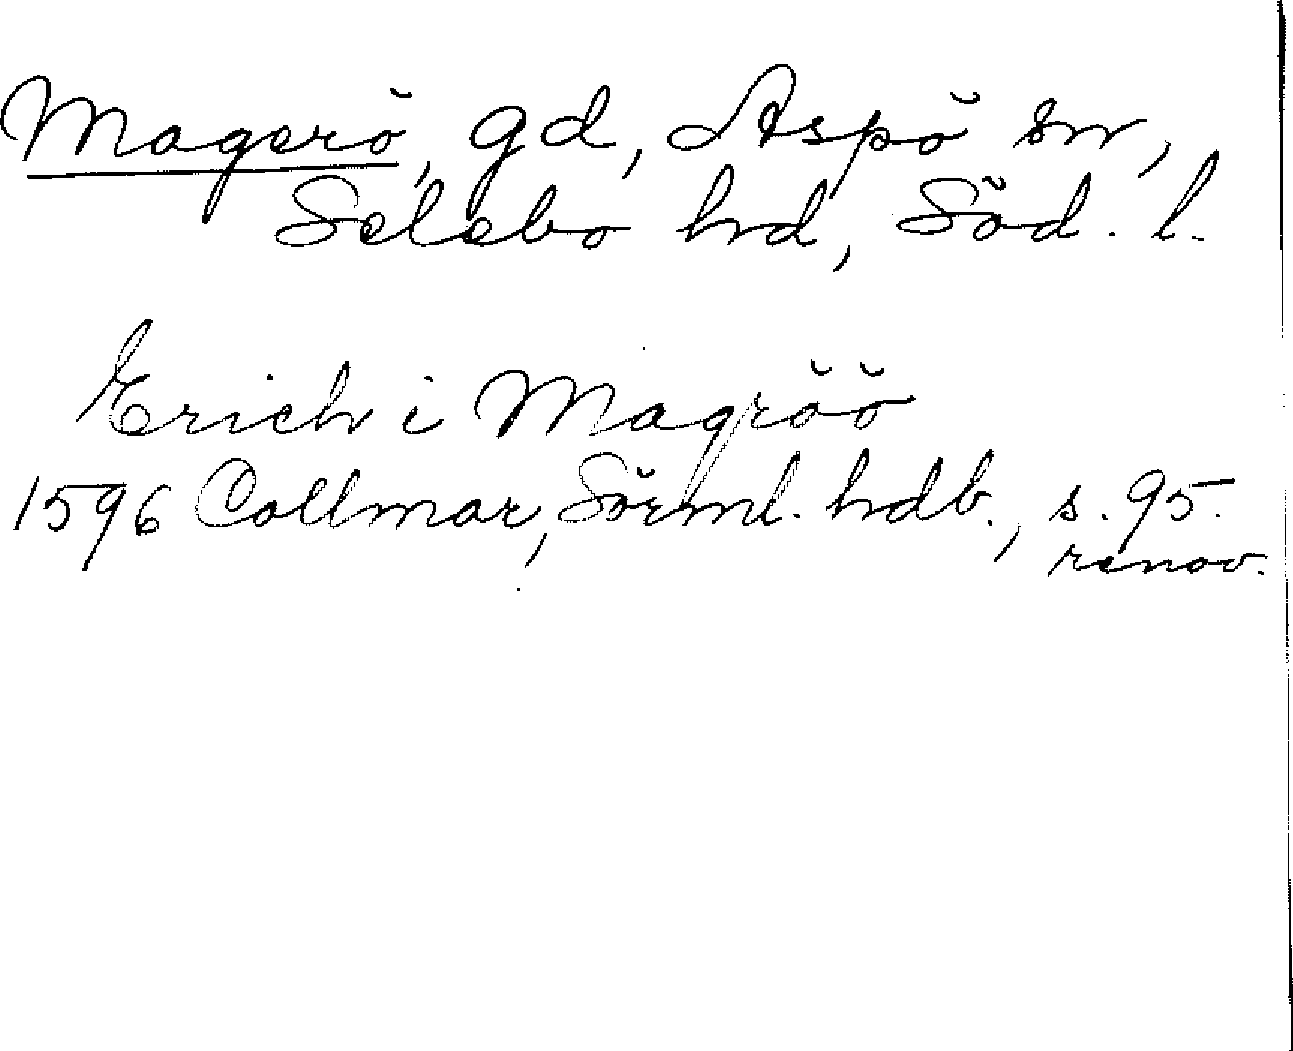 Magerö, gd, Aspö sn,
Selebo hd, Söd. l.
Erich i Magröö
1596 Collmar, Sörml. hdb., s. 95.
renov.